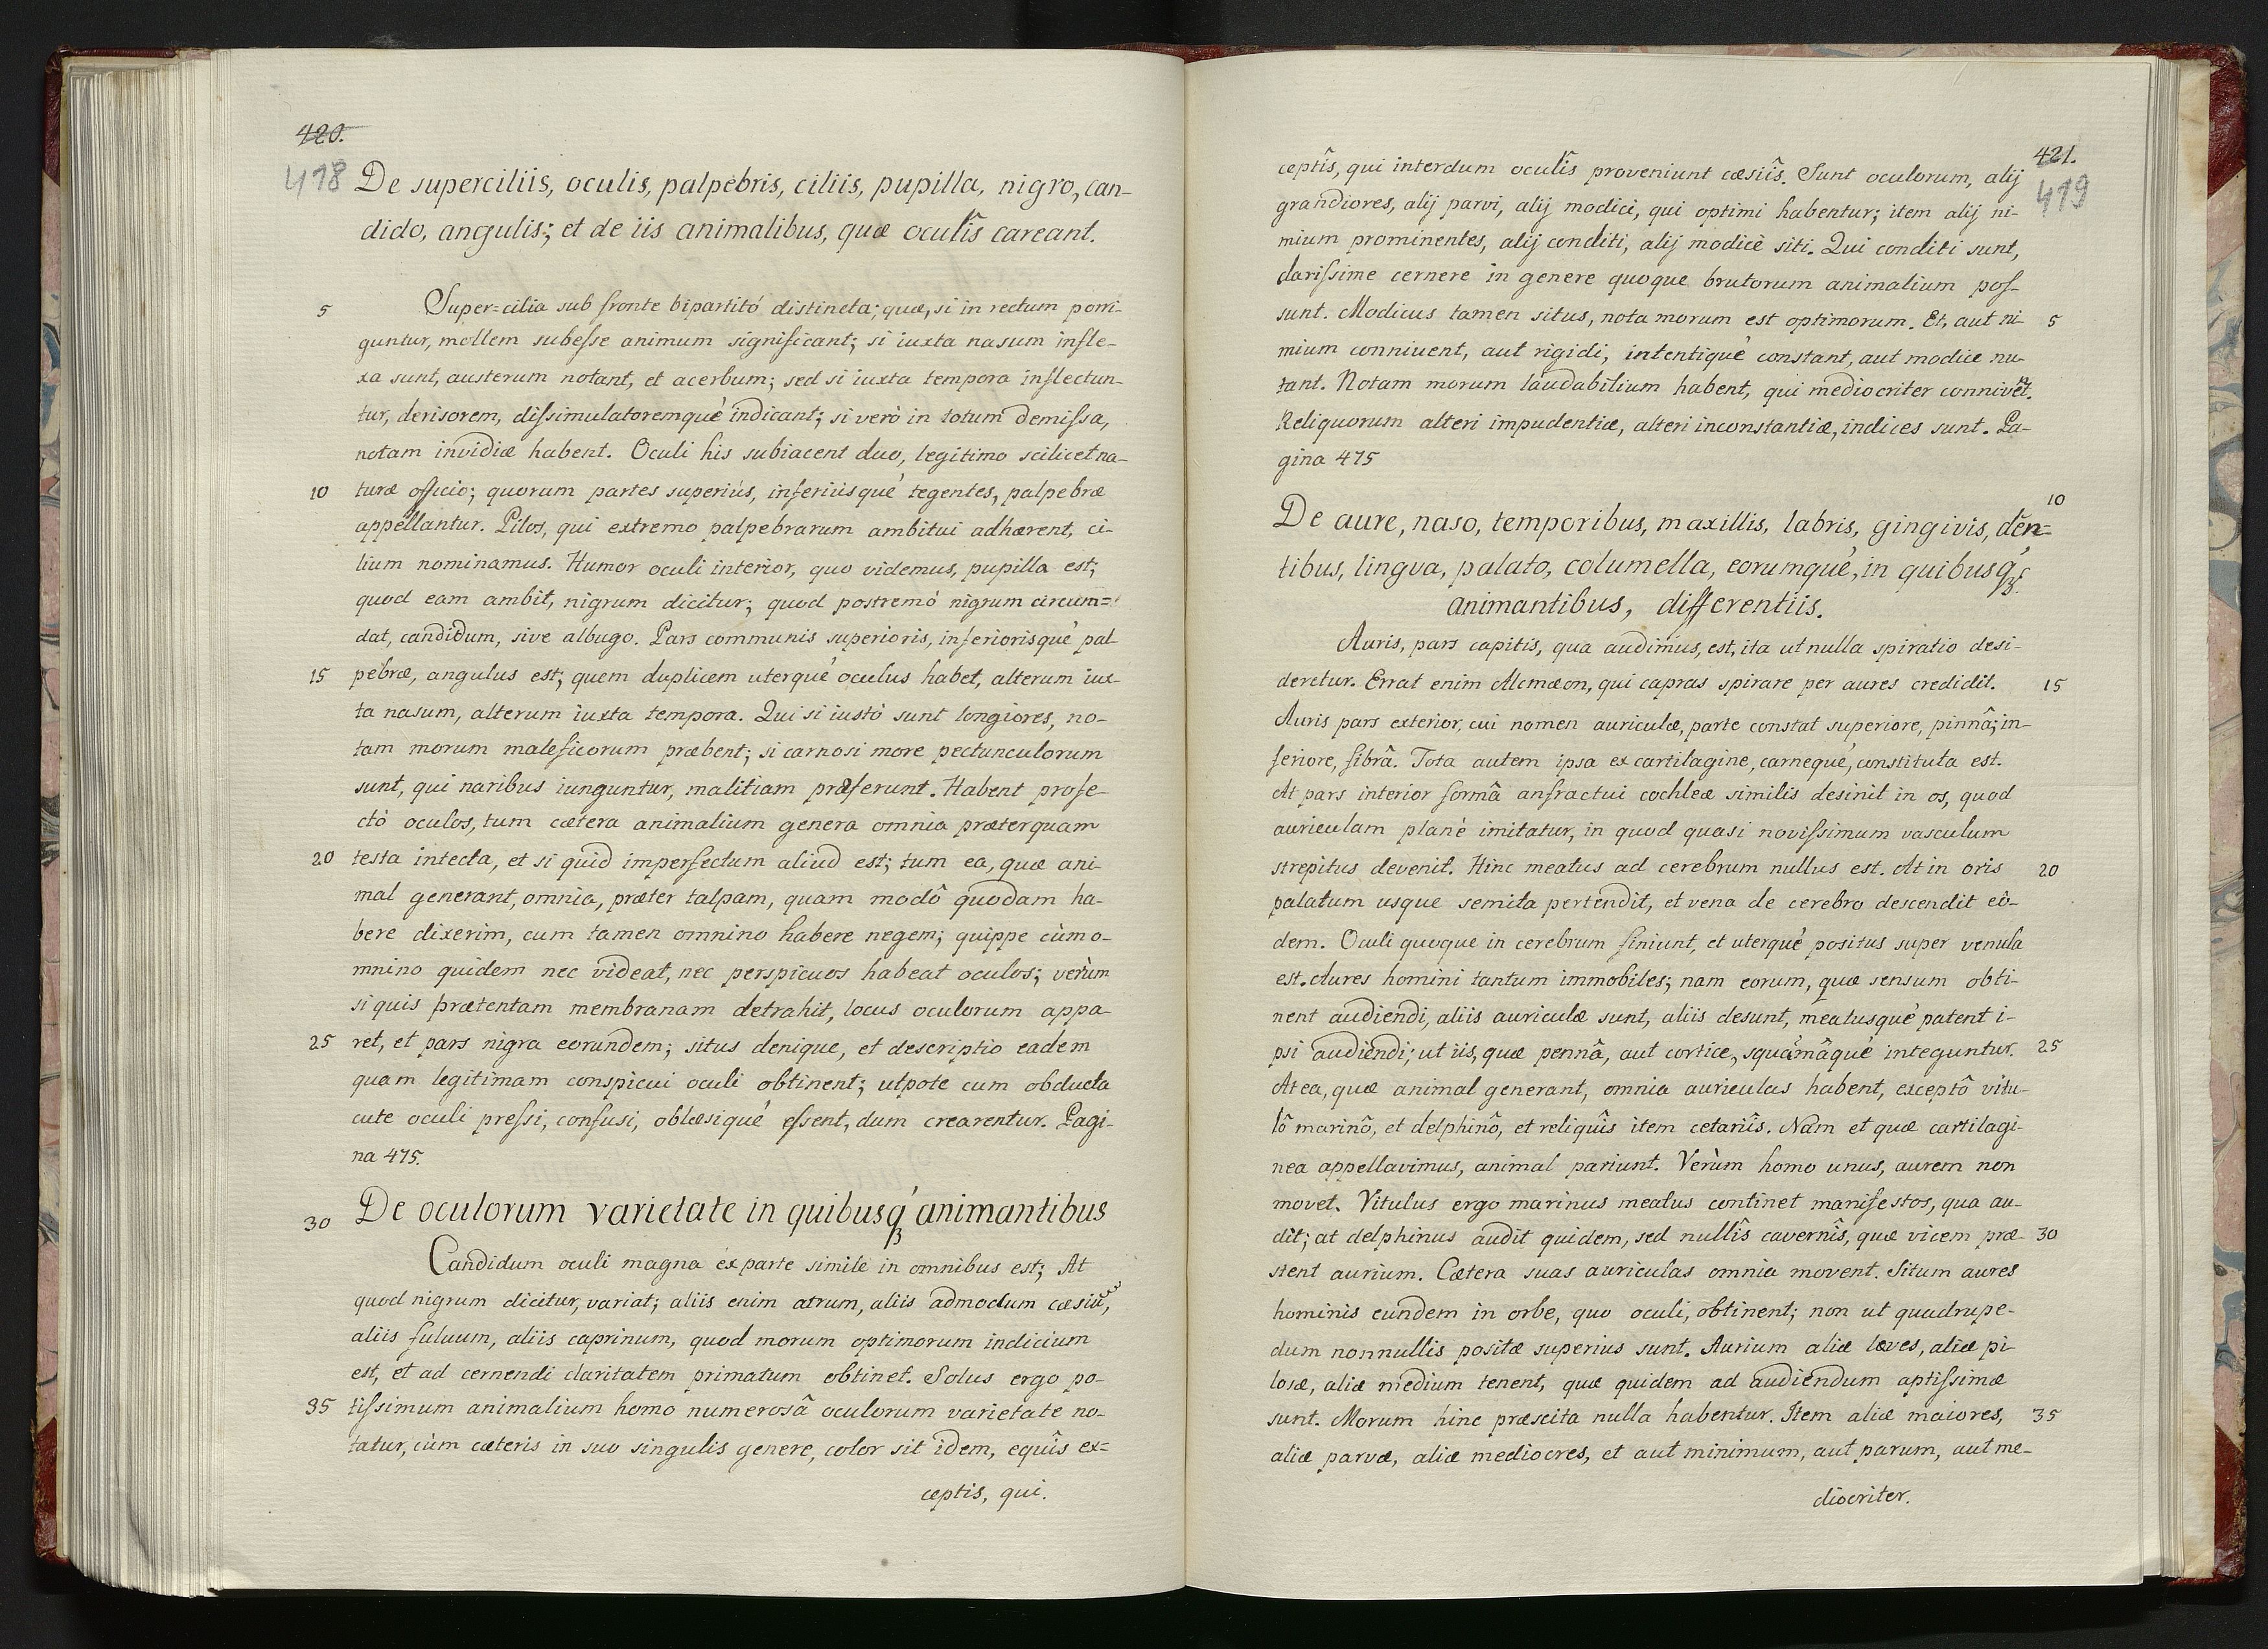 420.
418
De superciliis, oculis, palpebris, ciliis, pupilla, nigro, can-
dido, angulis; et de iis animalibus, quæ oculîs careant.
5 Super=cilia sub fronte bipartitó distincta; quæ, si in rectum porri-
guntur, mollem subesse animum significant; si iuxta nasum infle-
xa sunt, austerum notant, et acerbum; sed si iuxta tempora inflectun-
tur, derisorem, dissimulatoremquè indicant; si verò in totum demissa,
notam invidiæ habent. Oculi his subiacent duo, legitimo scilicet na-
10 turæ officio; quorum partes superiùs, inferiùsquè tegentes, palpebræ
appellantur. Pilos, qui extremo palpebrarum ambitui adhærent, ci-
lium nominamus. Humor oculi interior, quo videmus, pupilla est;
quod eam ambit, nigrum dicitur; quod postremò nigrum circum=
dat, candidum, sive albugo. Pars communis superioris, inferiorisquè pal
15 pebræ, angulus est; quem duplicem uterquè oculus habet, alterum iux-
ta nasum, alterum iuxta tempora. Qui si iustò sunt longiores, no-
tam morum maleficorum præbent; si carnosi more pectunculorum
sunt, qui naribus iunguntur, malitiam præferunt. Habent profe-
ctò oculos, tum cætera animalium genera omnia præterquam
20 testa intecta, et si quid imperfectum aliud est; tum ea, quæ ani-
mal generant, omnia, præter talpam, quam modô quodam ha-
bere dixerim, cum tamen omnino habere negem; quippe cùm o-
mnino quidem nec videat, nec perspicuos habeat oculos; verùm
si quis prætentam membranam detrahit, locus oculorum appa-
25 ret, et pars nigra eorundem; situs denique, et descriptio eadem
quam legitimam conspicui oculi obtinent; utpote cum obducta
cute oculi pressi, confusi, oblæsiquè essent, dum crearentur. Pagi-
na 475.
30 De oculorum varietate in quibusq́ꝫ animantibus
Candidum oculi magna ex parte simile in omnibus est; At
quod nigrum dicitur, variat; aliis enim atrum, aliis admodum cæsiũ,
aliis fuluum, aliis caprinum, quod morum optimorum indicium
est, et ad cernendi claritatem primatum obtinet. Solus ergo po-
35 tissimum animalium homo numerosâ oculorum varietate no-
tatur, cùm cæteris in suo singulis genere, color sit idem, equîs ex=
ceptis, qui.
421.
419
ceptîs, qui interdum oculîs proveniunt cæsiîs. Sunt oculorum, alij
grandiores, alij parvi, alij modici, qui optimi habentur; item alij ni-
mium prominentes, alij conditi, alij modicè siti. Qui conditi sunt,
clarissime cernere in genere quoque brutorum animalium pos-
sunt. Modicus tamen situs, nota morum est optimorum. Et, aut ni- 5
mium conniuent, aut rigidi, intentiquè constant, aut modice nu-
tant. Notam morum laudabilium habent, qui mediocriter connivẽt.
Reliquorum alteri impudentiæ, alteri inconstantiæ, indices sunt. Pa-
gina 475
10
De aure, naso, temporibus, maxillis, labris, gingivis, den=
tibus, lingva, palato, columella, eorumquè, in quibusq́ꝫ
animantibus, differentiis.
Auris, pars capitis, qua audimus, est, ita ut nulla spiratio desi-
deretur. Errat enim Alcmæon, qui capras spirare per aures credidit. 15
Auris pars exterior, cui nomen auriculæ, parte constat superiore, pinnâ; in-
feriore, fibrâ. Tota autem ipsa ex cartilagine, carnequè, constituta est.
At pars interior formâ anfractui cochleæ similis desinit in os, quod
auriculam planè imitatur, in quod quasi novissimum vasculum
strepitus devenit. Hinc meatus ad cerebrum nullus est. At in oris 20
palatum usque semita pertendit, et vena de cerebro descendit eô-
dem. Oculi quoque in cerebrum finiunt, et uterquè positus super venula
est. Aures homini tantum immobiles; nam eorum, quæ sensum obti-
nent audiendi, aliis auriculæ sunt, aliis desunt, meatusquè patent i-
psi audiendi; ut iis, quæ pennâ, aut cortice, squamâquè integuntur. 25
At ea, quæ animal generant, omnia auriculas habent, exceptô vitu-
lô marinô, et delphinô, et reliquîs item cetariîs. Nam et quæ cartilagi-
nea appellavimus, animal pariunt. Verùm homo unus, aurem non
movet. Vitulus ergo marinus meatus continet manifestos, qua au-
dit; at delphinus audit quidem, sed nullîs cavernîs, quæ vicem præ- 30
stent aurium. Cætera suas auriculas omnia movent. Situm aures
hominis eundem in orbe, quo oculi, obtinent; non ut quadrupe-
dum nonnullis positæ superius sunt. Aurium aliæ læves, aliæ pi-
losæ, aliæ medium tenent, quæ quidem ad audiendum aptissimæ
sunt. Morum hinc præscita nulla habentur. Item aliæ maiores, 35
aliæ parvæ, aliæ mediocres, et aut minimum, aut parum, aut me-
diocriter.